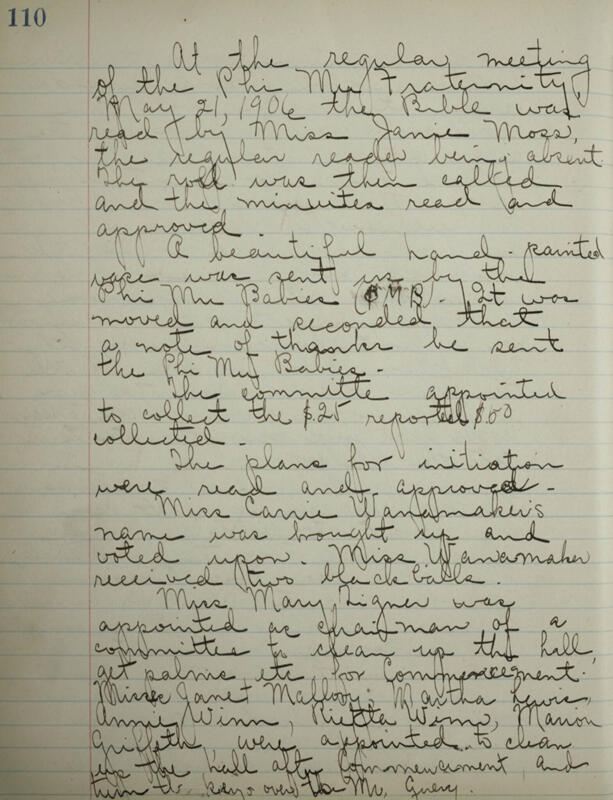 110
At the regular meeting
of the Phi Mu Fraternity,
May 21, 1906 the Bible was
read by Miss Janie Moss,
the regular reader being absent.
The roll was then called
and the minuites read and
approved
A beautiful hand-painted
vase was sent us by the
Phi Mu Babies (ΦMB). It was
moved and seconded that
a note of thanks be sent
the Phi Mu Babies.
The committe appointed
to collect the $.25 reported $.00
collected.
The plans for initiation
were read and approved-
Miss Carrie Wanamaker's
name was brought up and
voted upon. Miss Wanamaker
received two black balls.
Miss Mary Tigner was
appointed as chairman of a
committee to clean up the hall,
get palms etc for Commencement.
Misses Janet Mallory, Martha Lewis,
Annie Winn, Rietta Winn, Marion
Griffeth, were appointed to clean
up the hall after Commencement and
turn the keys over to Mr.